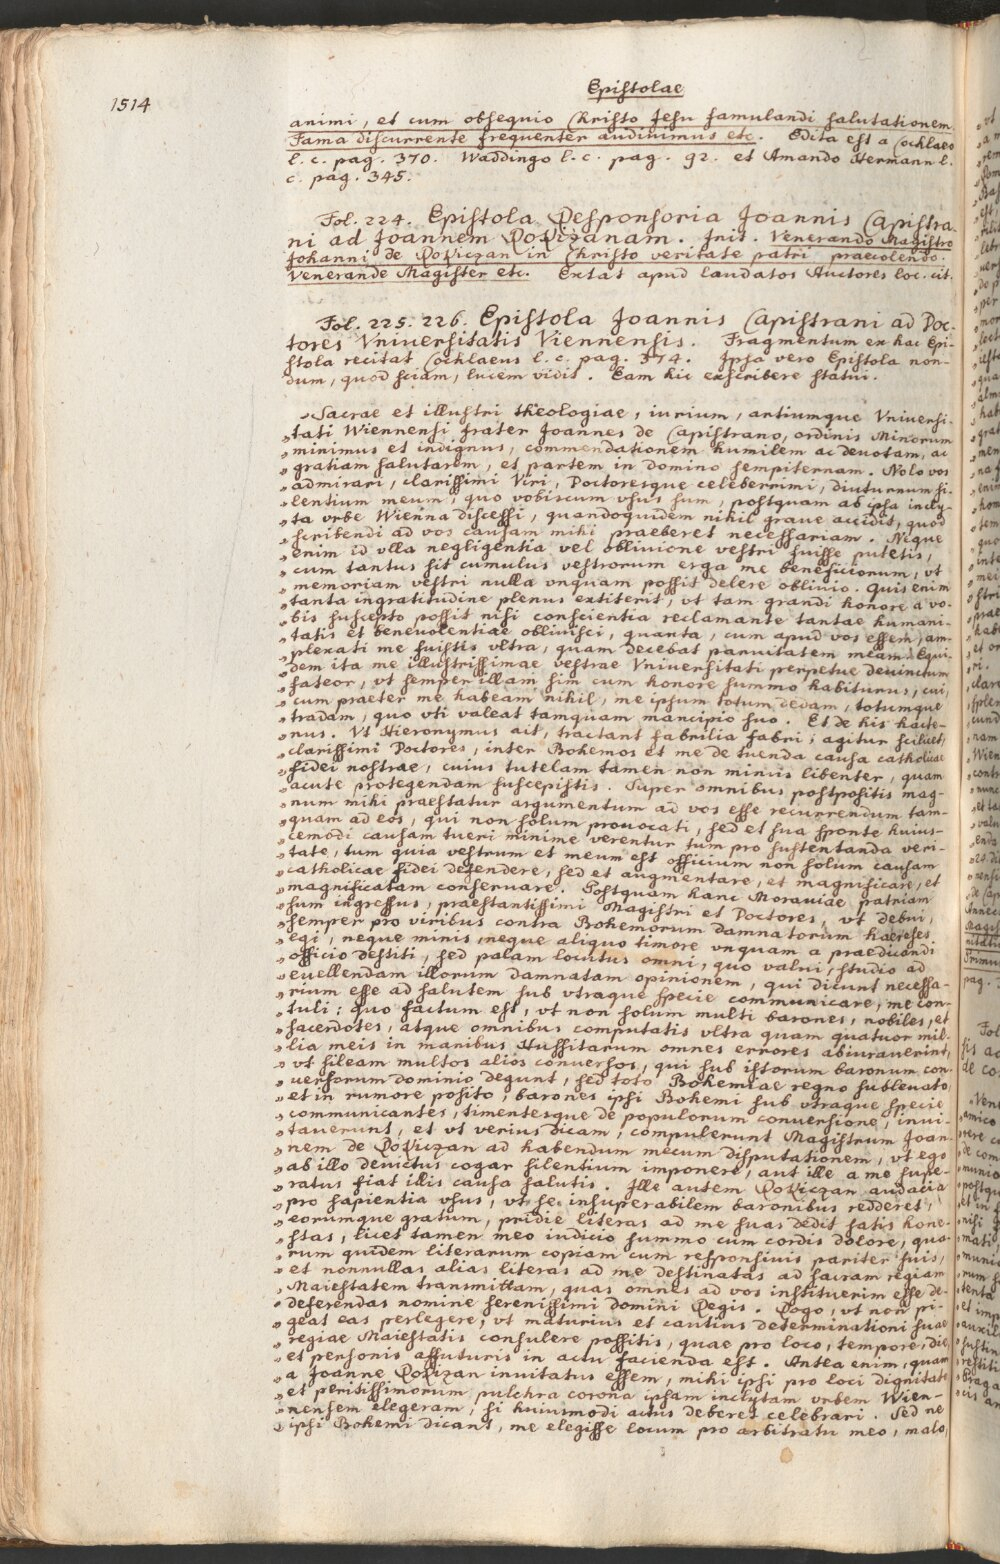 1514
Epistolae
animi, et cum obsequio Christo Jesu famulandi salutationem
Fama discurrente frequenter audivimus etc. Edita est a Cochlaeo
l. c. pag. 370. Waddingo l. c. pag. 92. et Amando Hermann l.
c. pag. 345.
Fol. 224. Epistola Responsoria Joannis Capistra-
ni ad Joannem RoKizanam. Init. Venerando Magistro
Johanni de RoKiczan in Christo veritate patri praecolendo.
Venerande Magister etc. Extat apud laudatos Auctores loc. cit.
Fol. 225. 226. Epistola Joannis Capistrani ad Doc-
tores Vniuersitatis Viennensis. Fragmentum ex hac Epi-
stola recitat Cochlaeus l. c. pag. 374. Ipsa vero Epistola non-
dum, quod sciam, lucem vidit. Eam hic exscribere statui.
„Sacrae et illustri theologiae, iurium, artiumque Vniuersi-
„tati Wiennensi frater Joannes de Capistrano, ordinis Minorum
„minimus et indignus, commendationem humilem ac deuotam, ac
„gratiam salutarem, et partem in domino sempiternam. Nolo vos
„admirari, clarissimi Viri, Doctoresque celeberrimi, diuturnum si-
„lentium meum, quo vobiscum vsus sum, postquam ab ipsa incly-
„ta vrbe Wienna discessi, quandoquidem nihil graue accidit, quod
„scribendi ad vos causam mihi praeberet necessariam. Neque
„enim id vlla negligentia vel obliuione vestri fuisse putetis,
„cum tantus sit cumulus vestrorum erga me beneficiorum, vt
„memoriam vestri nulla vnquam possit delere obliuio. Quis enim
„tanta ingratitudine plenus extiterit, vt tam grandi honore a vo-
„bis suscepto possit nisi conscientia reclamante tantae humani-
„tatis et beneuolentiae obliuisci, quanta, cum apud vos essem, am-
„plexati me fuistis vltra, quam decebat paruitatem meam. Equi-
„dem ita me illustrissimae vestrae Vniuersitati perpetue deuinctum
„fateor, vt semper illam sim cum honore summo habiturus, cui,
„cum praeter me habeam nihil, me ipsum totum dedam, totumque
„tradam, quo vti valeat tamquam mancipio suo. Et de his hacte-
„nus. Vt Hieronymus ait, tractant fabrilia fabri; agitur scilicet,
„clarissimi Doctores, inter Bohemos et me de tuenda causa catholicae
„fidei nostrae, cuius tutelam tamen non minus libenter, quam
„acute protegendam suscepistis. Super omnibus postpositis mag-
„num mihi praestatur argumentum ad vos esse recurrendum tam-
„quam ad eos, qui non solum prouocati, sed et sua sponte huius-
„cemodi causam tueri minime verentur tum pro sustentanda veri-
„tate, tum quia vestrum et meum est officium non solum causam
„catholicae fidei defendere, sed et augmentare, et magnificare, et
„magnificatam conseruare. Postquam hanc Morauiae patriam
„sum ingressus, praestantissimi Magistri et Doctores, vt debui,
„semper pro viribus contra Bohemorum damnatorum haereses
„egi, neque minis, neque aliquo timore vnquam a praedicandi
„officio destiti, sed palam locutus omni, quo valui, studio ad
„euellendam illorum damnatam opinionem, qui dicunt necessa-
„rium esse ad salutem sub vtraque specie communicare, me con-
„tuli: quo factum est, vt non solum multi barones, nobiles, et
„sacerdotes, atque omnibus computatis vltra quam quatuor mil-
„lia meis in manibus Hussitarum omnes errores abiurauerint,
„vt sileam multos alios conuersos, qui sub istorum baronum con-
„uersorum dominio degunt, sed toto Bohemiae regno subleuato,
„et in rumore posito, barones ipsi Bohemi sub vtraque specie
„communicantes, timentesque de populorum conuersione, inui-
„tauerunt, et vt verius dicam, compulerunt Magistrum Joan-
„nem de RoKiczan ad habendum mecum disputationem, vt ego
„ab illo deuictus cogar silentium imponere, aut ille a me supe-
„ratus fiat illis causa salutis. Ille autem RoKiczan audacia
„pro sapientia vsus, vt se insuperabilem baronibus redderet,
„eorumque gratum, pridie literas ad me suas dedit satis hone-
„stas, licet tamen meo iudicio summo cum cordis dolore, qua-
„rum quidem literarum copiam cum responsiuis pariter suis,
„et nonnullas alias literas ad me destinatas ad sacram regiam
„Maiestatem transmittam, quas omnes ad vos instituerim esse de-
„deferendas nomine serenissimi domini Regis. Rogo, vt non pi-
„geat eas perlegere, vt maturius et cautius determinationi suae
„regiae Maiestatis consulere possitis, quae pro loco, tempore, die,
„et personis affuturis in actu facienda est. Antea enim, quam
„a Joanne RoKizan inuitatus essem, mihi ipsi pro loci dignitate
„et peritissimorum pulchra corona ipsam inclytam vrbem Wien-
„nensem elegeram, si huiusmodi actus deberet celebrari. Sed ne
„ipsi Bohemi dicant, me elegisse locum pro arbitratu meo, malo,